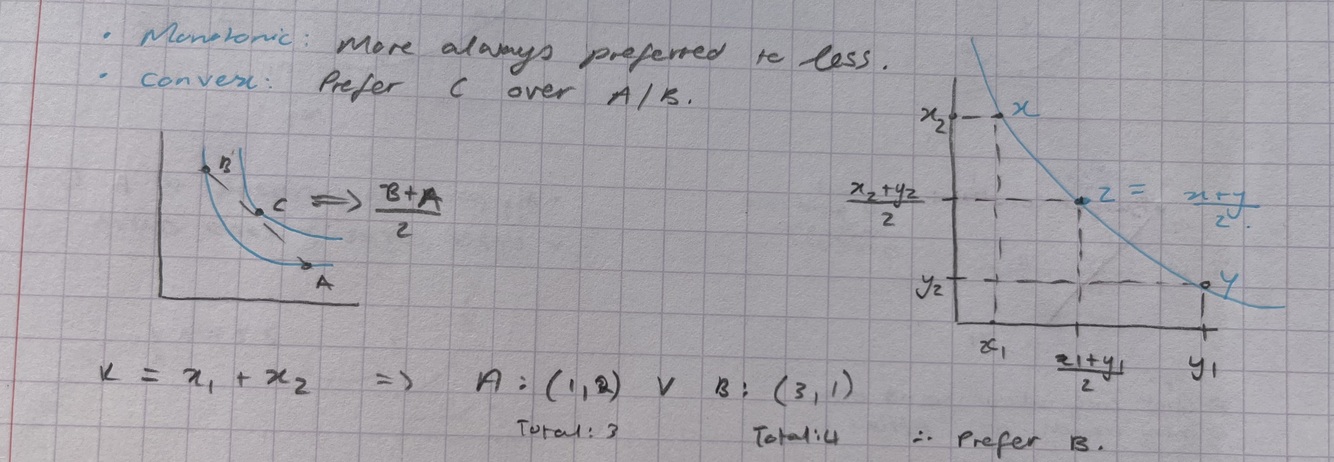 • Monotonic: More always preferred to less.
• Convex: Prefer C over A/B.
B
C ⟹ B+A/2
A
x₂
x
x₂+y₂/2
z = x+y/2.
y₂
y
x₁
x₁+y₁/2
y₁
K = x₁ + x₂ => A: (1,2) V B: (3,1)
Total: 3 Total: 4 ∴ Prefer B.